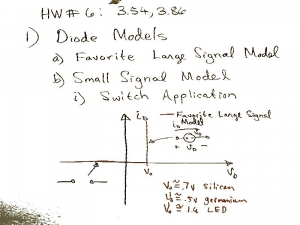 HW# 6: 3.54, 3.86
1) Diode Models
a) Favorite Large Signal Model
b) Small Signal Model
i) Switch Application
i_D
— Favorite Large Signal
Model
i_D
V_o
+ V_D -
V_o
V_D
V_o ≅ .7V silicon
V_o ≅ .5V germanium
V_o ≅ 1.4 LED